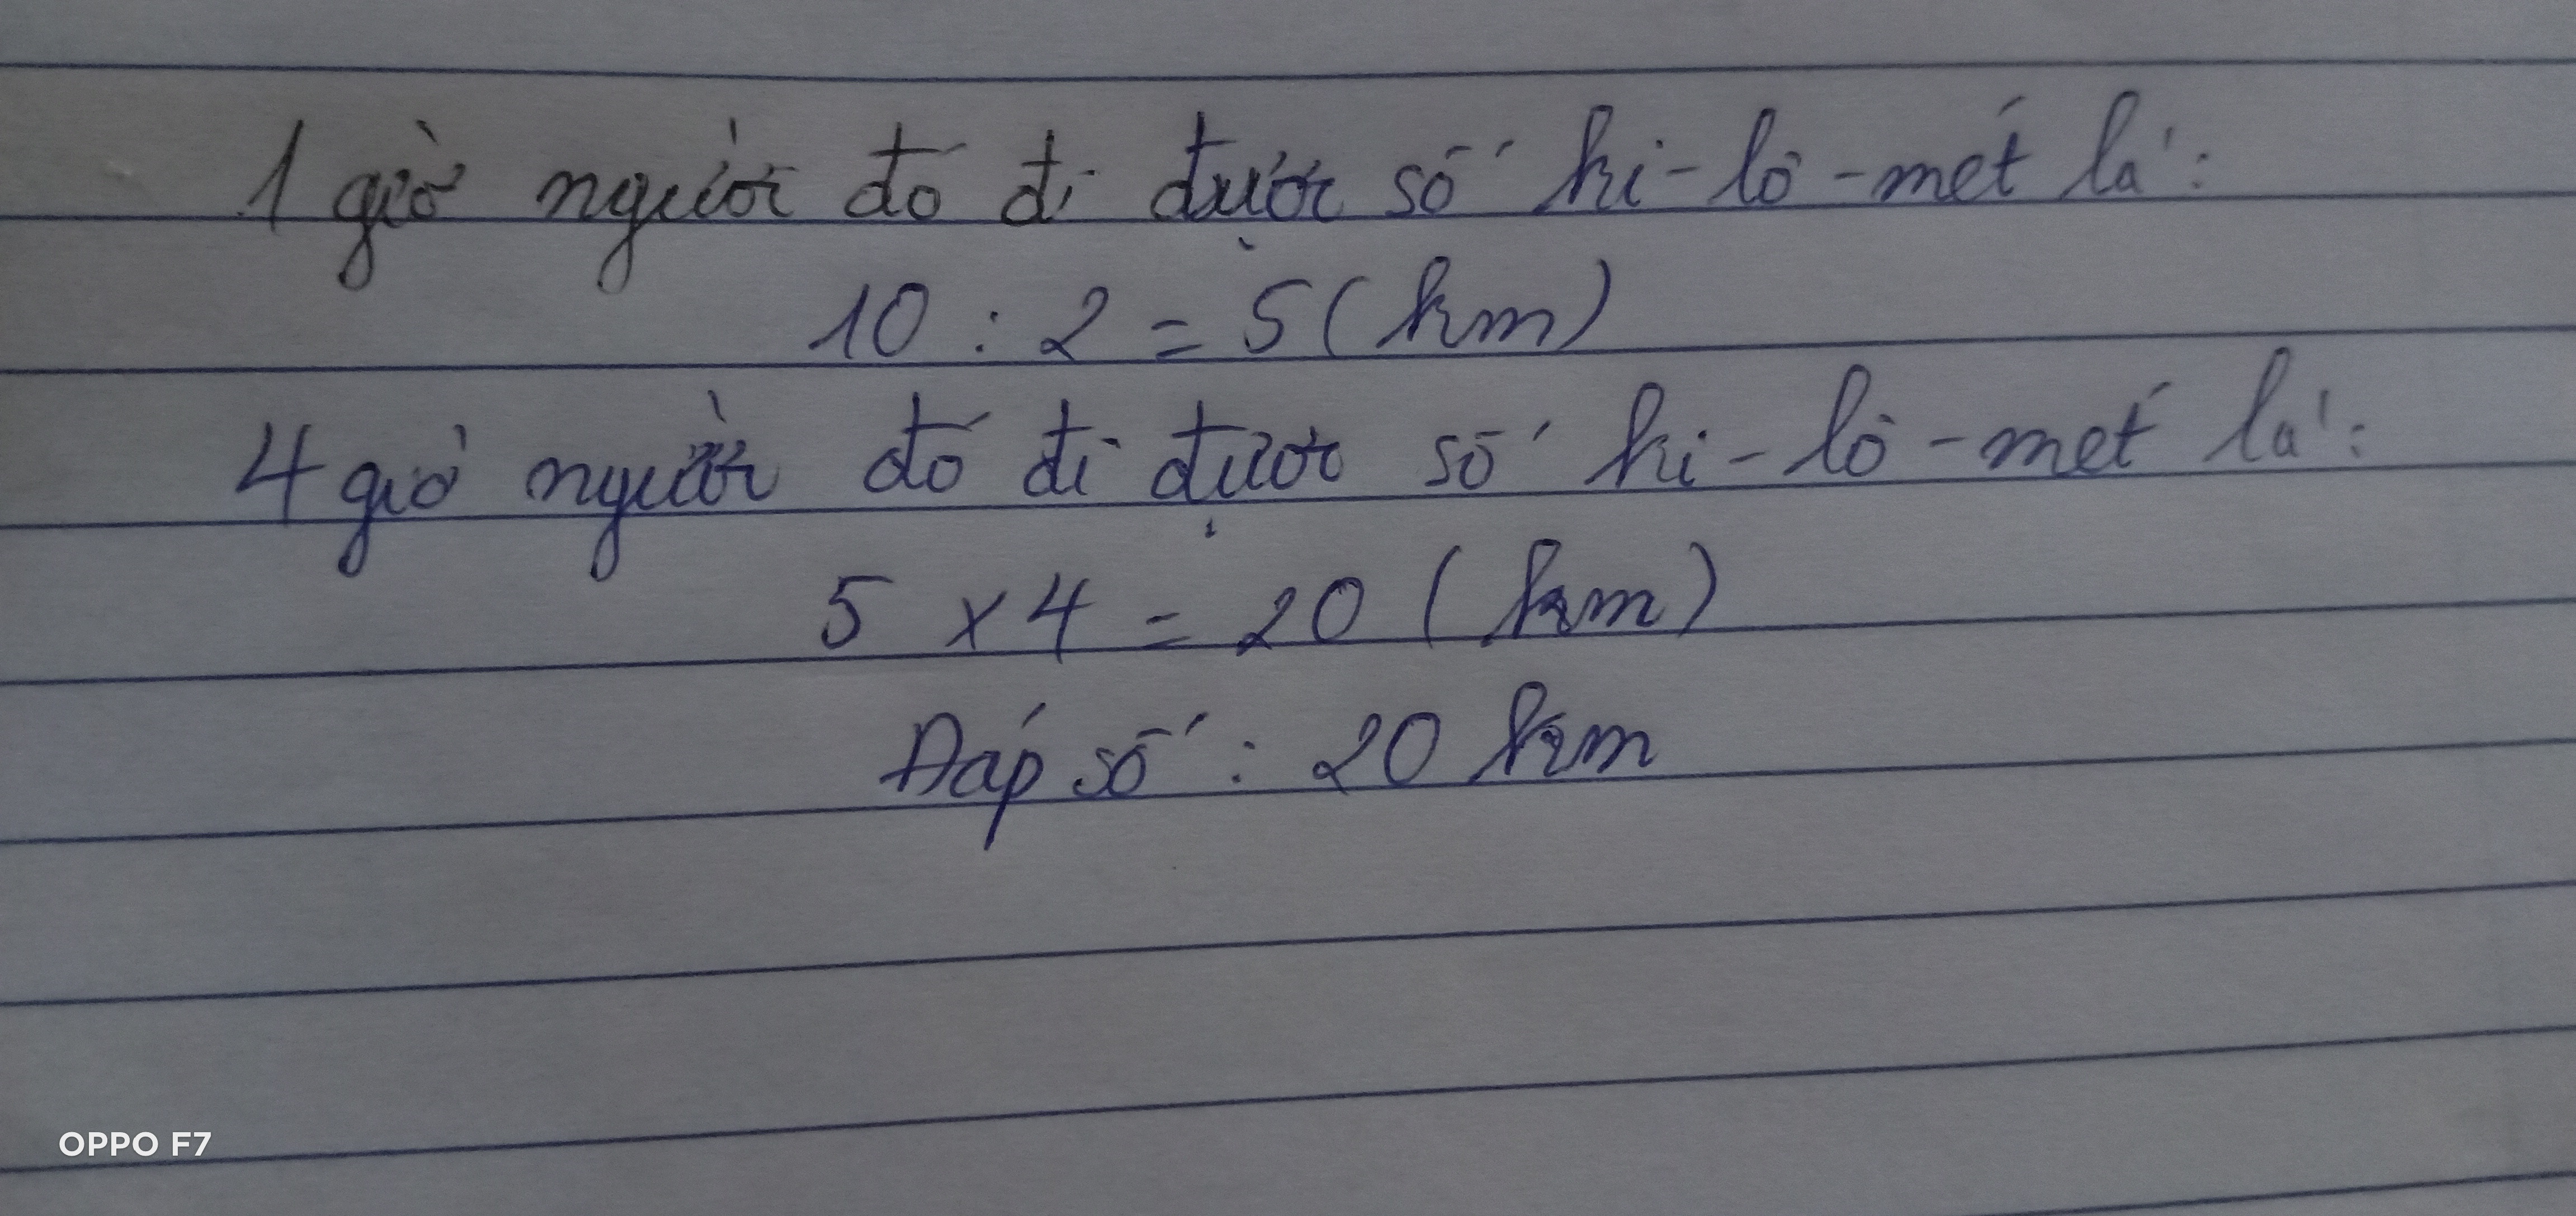 1 giờ người đó đi được số ki-lô-mét là:
10 : 2 = 5 (km)
4 giờ người đó đi được số ki-lô-mét là:
5 x 4 = 20 (km)
Đáp số : 20 km
OPPO F7